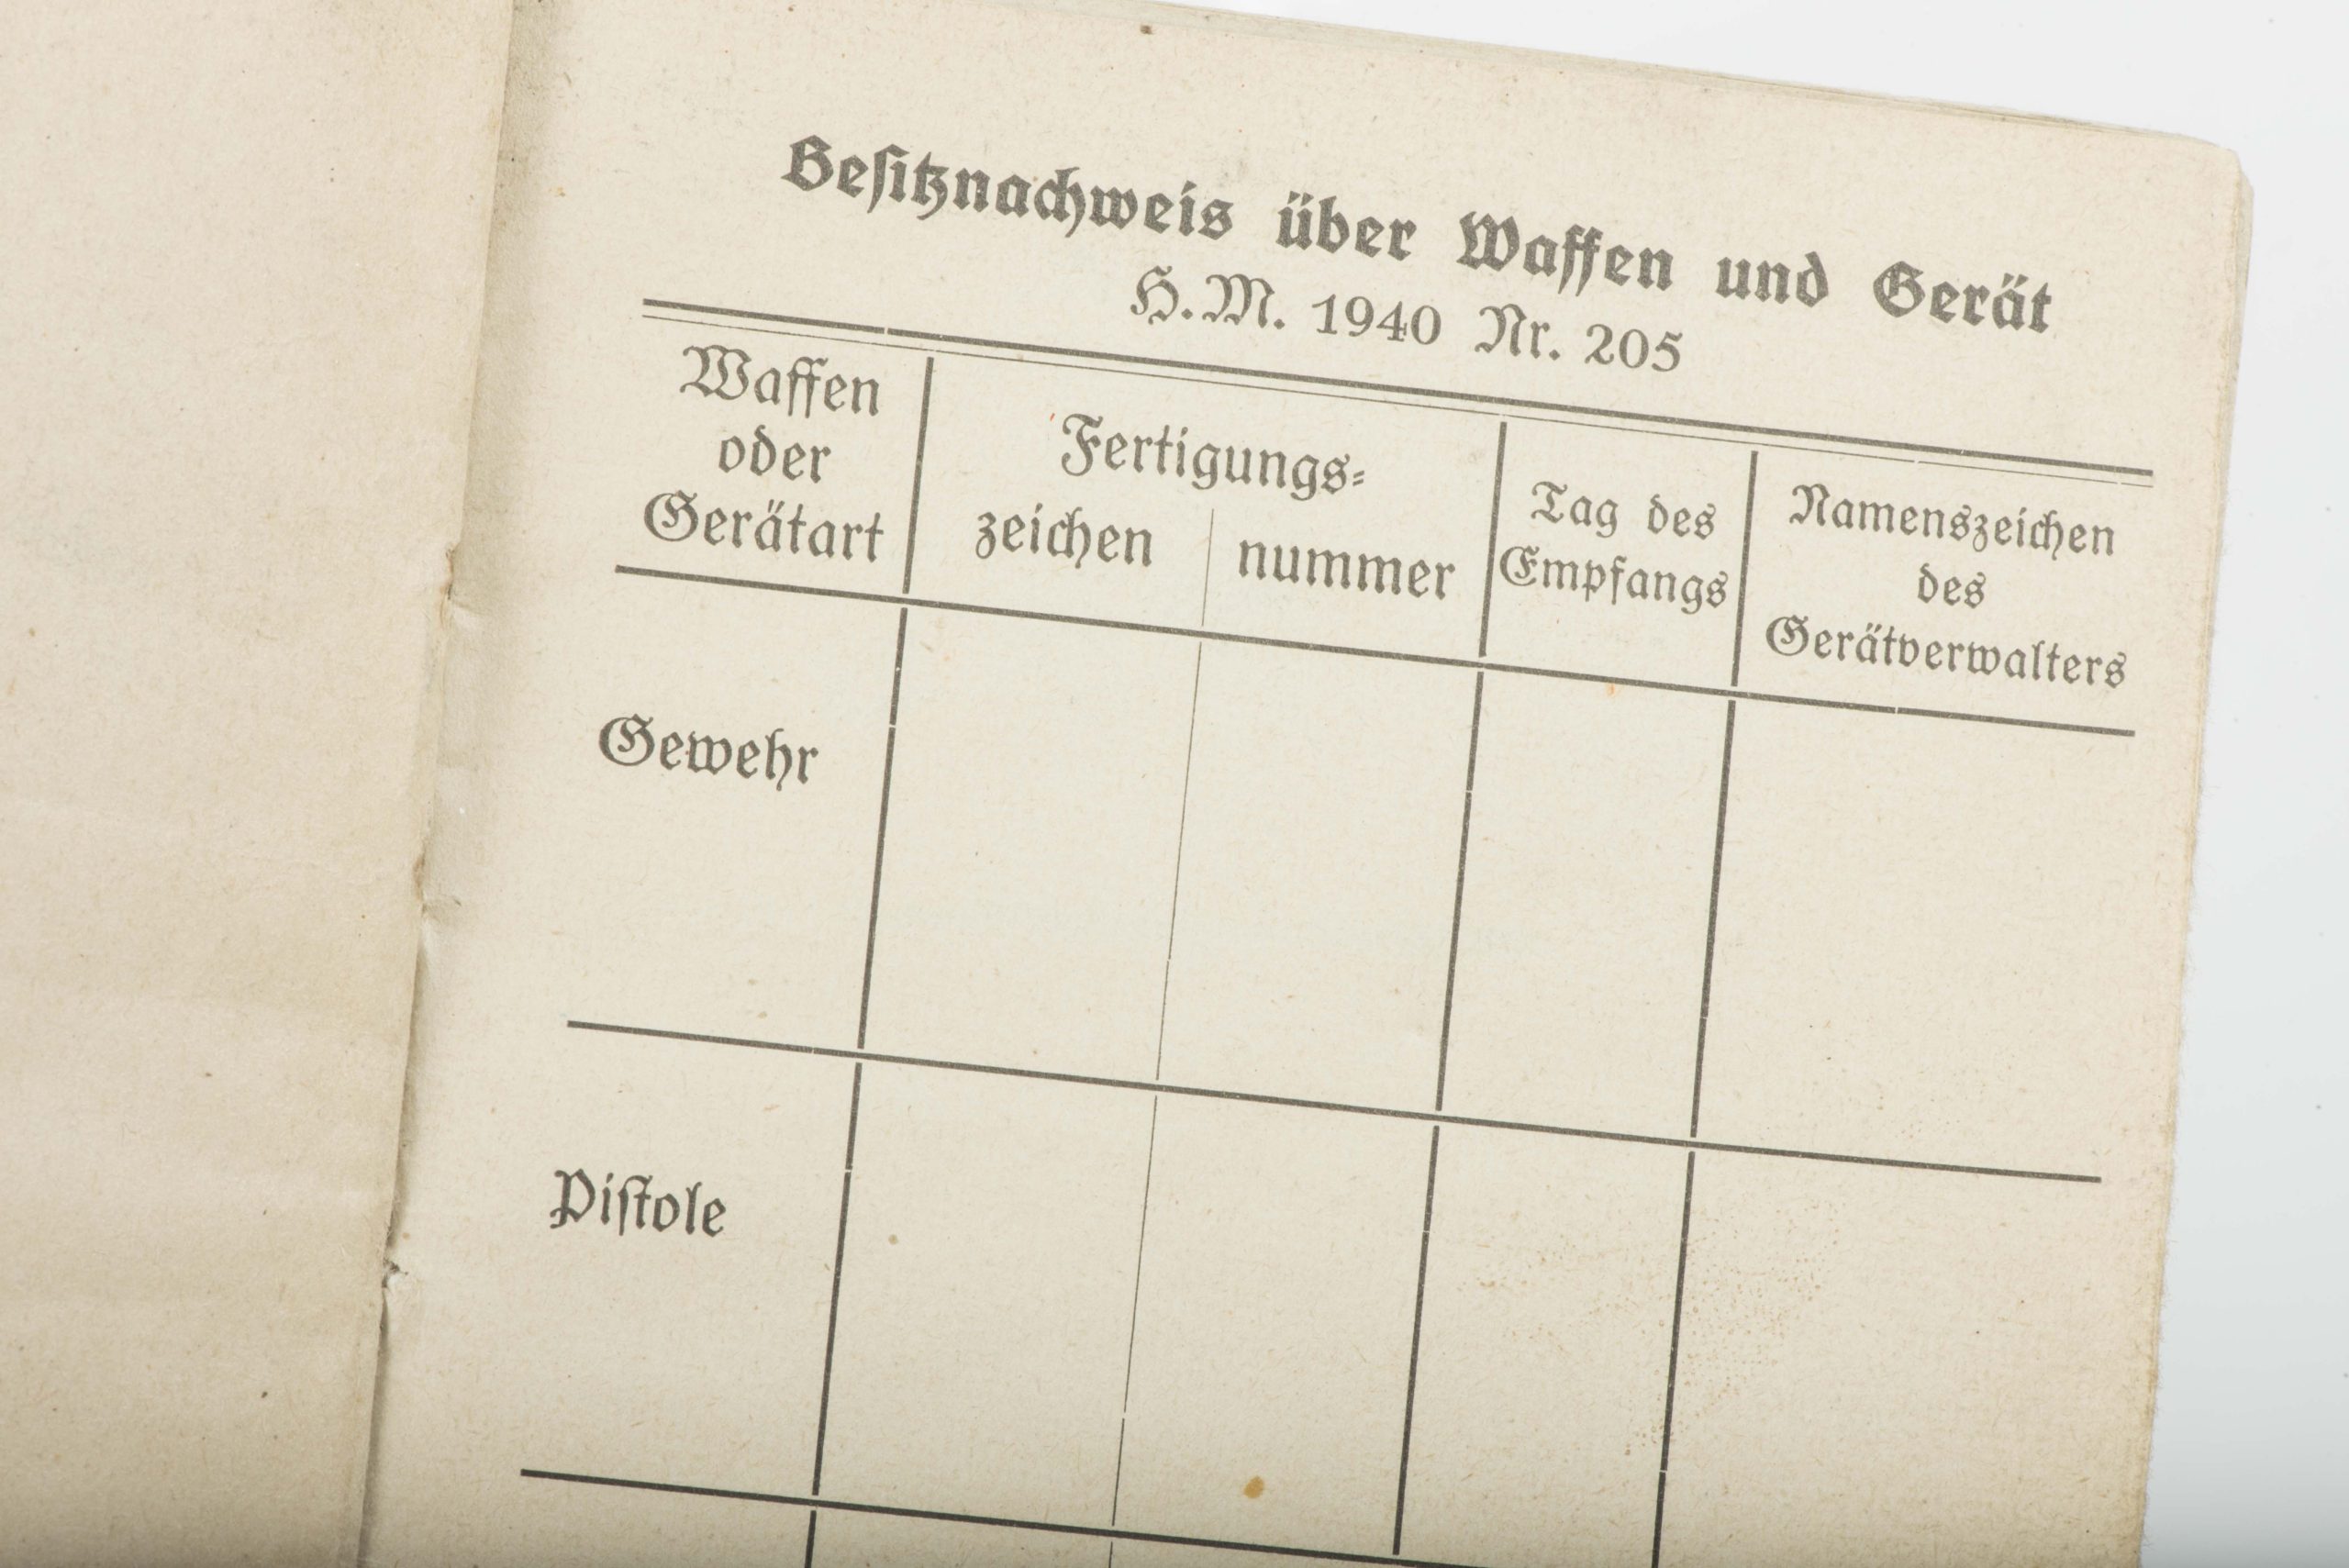 Beſitznachweis über Waffen und Gerät
H.M. 1940 Nr. 205
Waffen
oder
Gerätart
Fertigungs⸗
zeichen
nummer
Tag des
Empfangs
Namenszeichen
des
Gerätverwalters
Gewehr
Piſtole